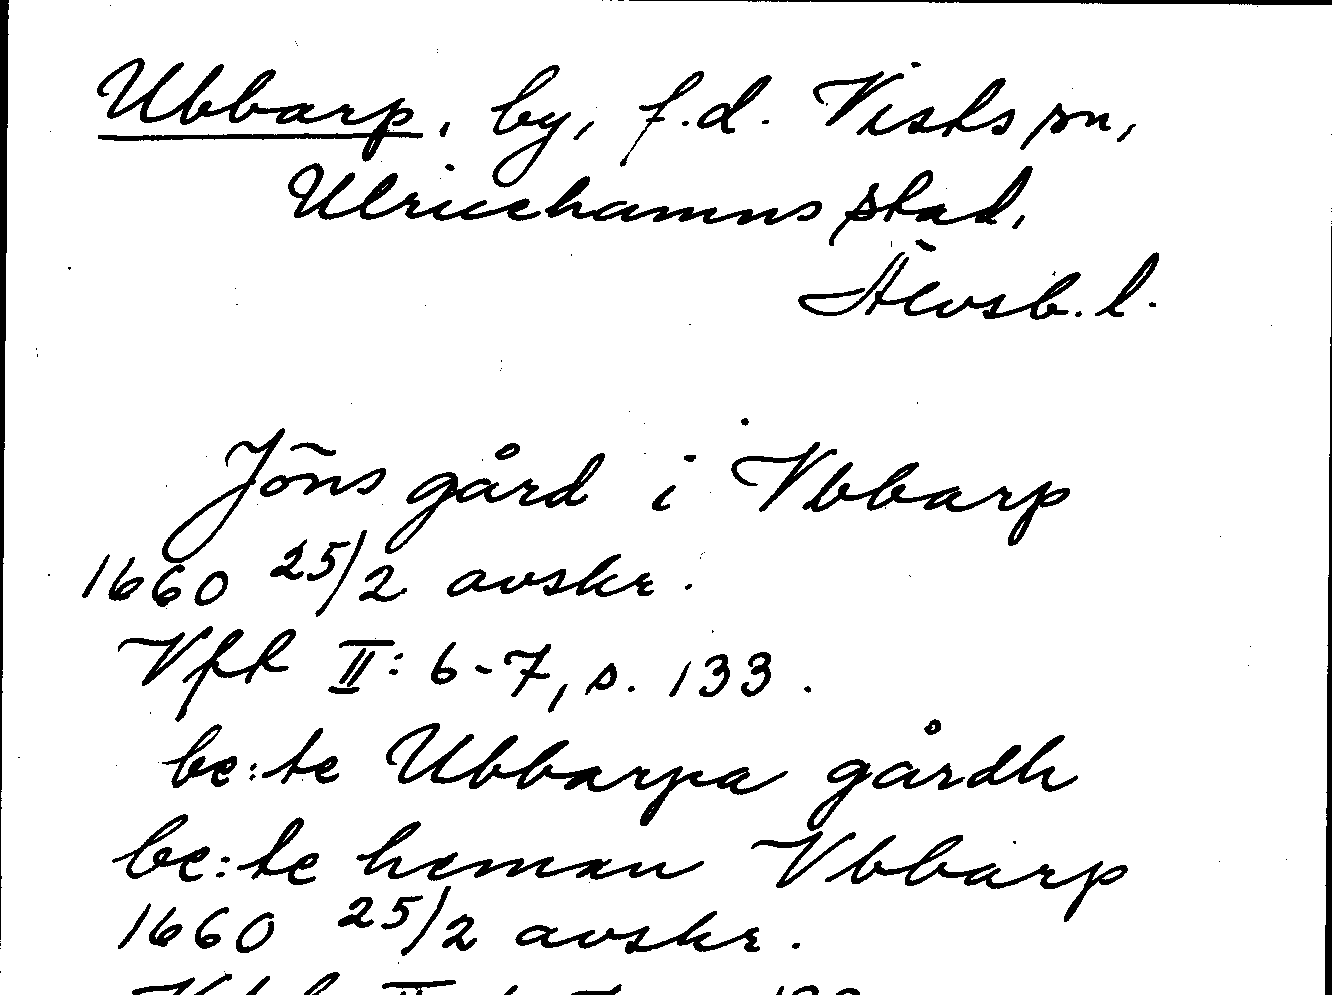 Ubbarp, by, f.d. Vists sn,
Ulricehamns stad,
Älvsb. l.
Jöns gård i Vbbarp
1660 25/2 avskr.
Vft II: 6-7, s. 133.
be:te Ubbarpa gårdh
be:te heman Vbbarp
1660 25/2 avskr.